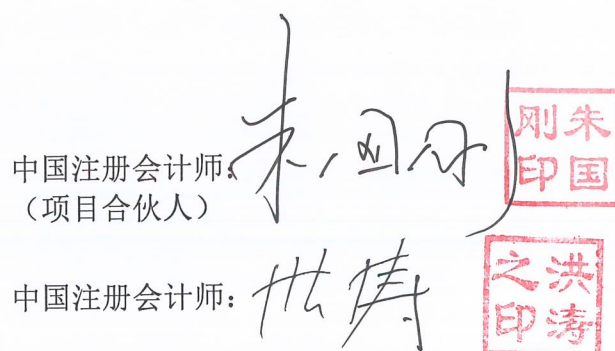 中国注册会计师：朱国刚
（项目合伙人）
朱国刚印
中国注册会计师：洪涛
洪涛之印